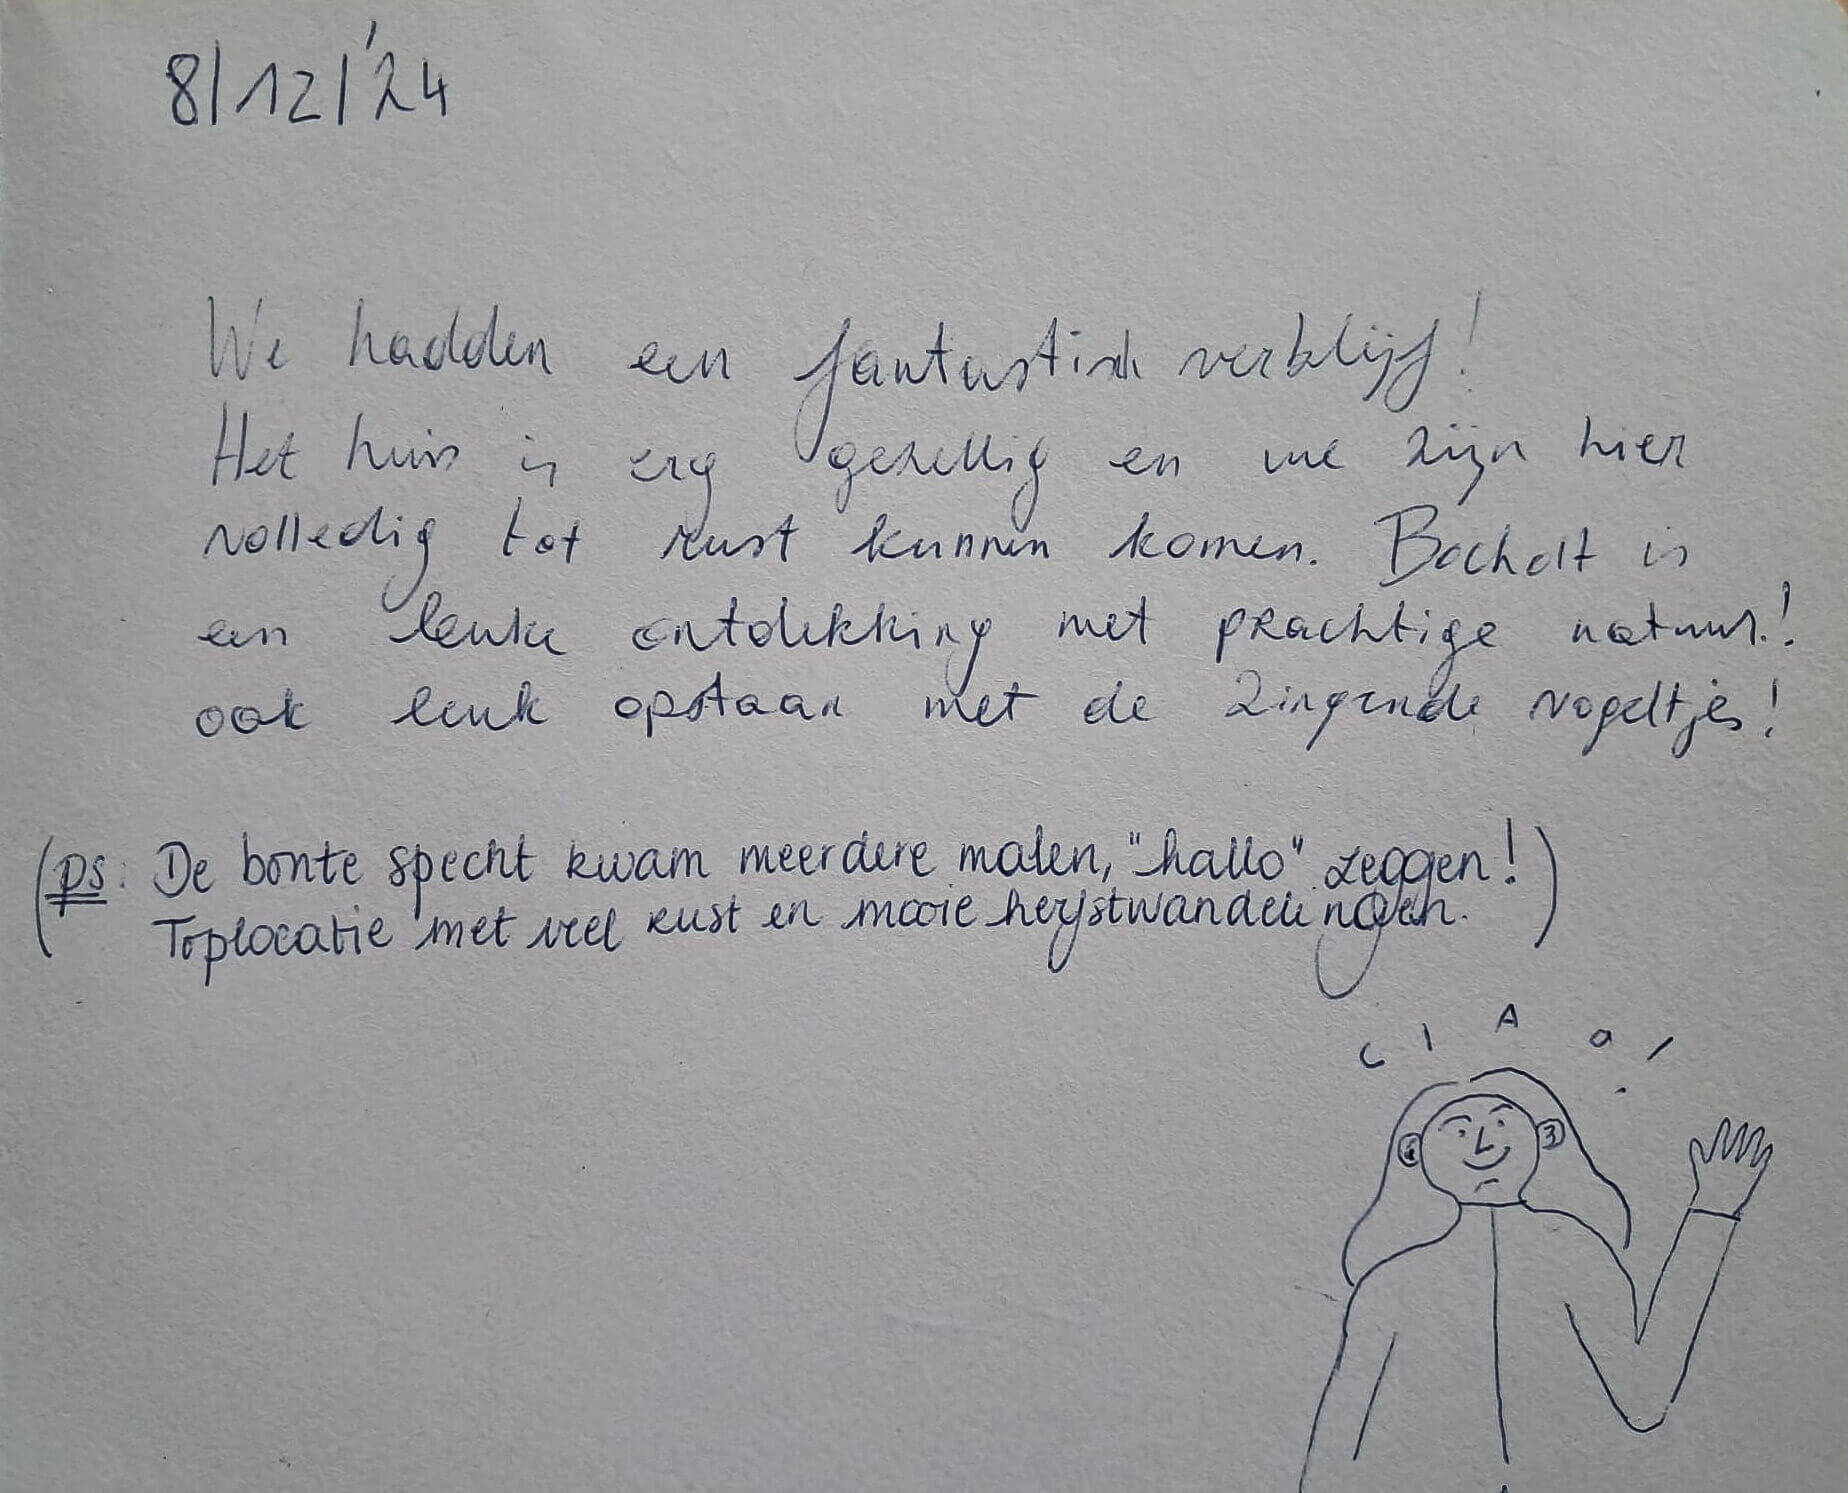 8/12/'24
We hadden een fantastisch verblijf!
Het huis is erg gezellig en we zijn hier
volledig tot rust kunnen komen. Bocholt is
een leuke ontdekking met prachtige natuur!
ook leuk opstaan met de zingende vogeltjes!
(ps: De bonte specht kwam meerdere malen, "hallo" zeggen!
Toplocatie met veel rust en mooie herfstwandelingen.)
CIAO!